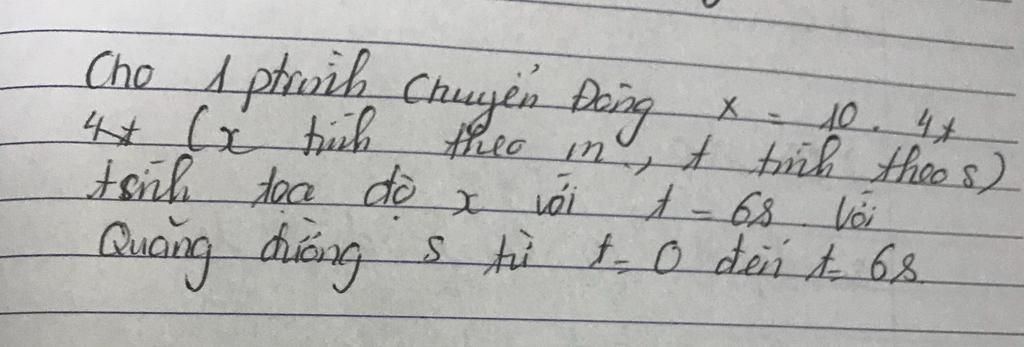 Cho 1 ptrình chuyển Động x = 10. 4t
4t (x tính theo m, t tính theo s)
tsính tọa độ x với t = 6s với
Quãng đường s từ t = 0 đến t = 6s